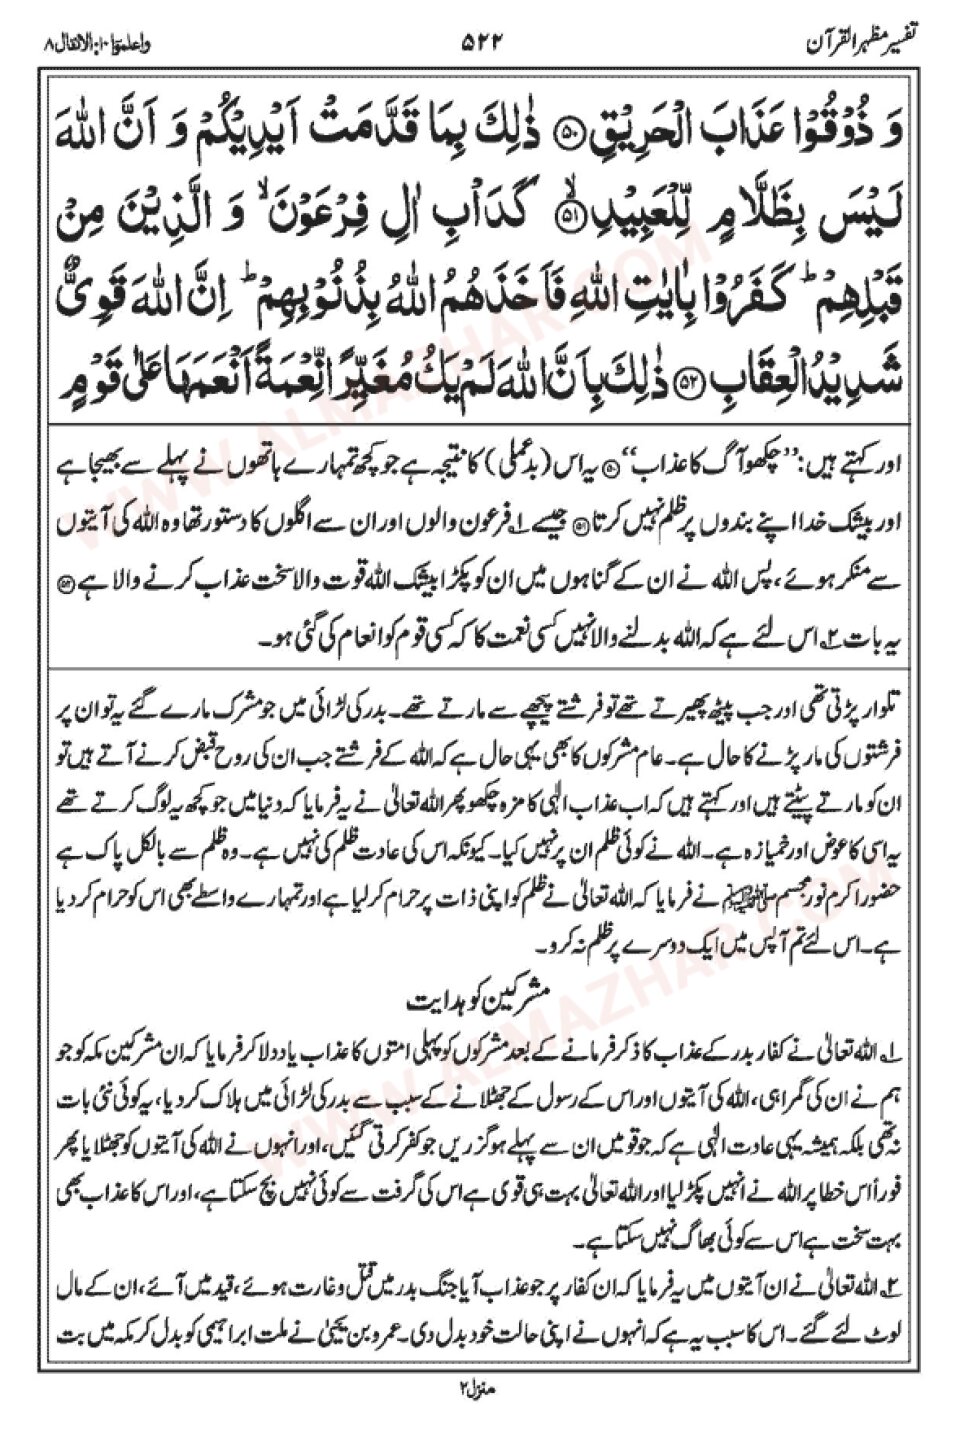 تفسیر مظہر القرآن
۵۲۲
واعلموا ۱۰: الانفال ۸
وَ ذُوْقُوْا عَذَابَ الْحَرِیْقِ ﴿۵۰﴾ ذٰلِكَ بِمَا قَدَّمَتْ اَیْدِیْكُمْ وَ اَنَّ اللّٰهَ
لَیْسَ بِظَلَّامٍ لِّلْعَبِیْدِۙ ﴿۵۱﴾ كَدَاْبِ اٰلِ فِرْعَوْنَۙ وَ الَّذِیْنَ مِنْ
قَبْلِهِمْؕ كَفَرُوْا بِاٰیٰتِ اللّٰهِ فَاَخَذَهُمُ اللّٰهُ بِذُنُوْبِهِمْؕ اِنَّ اللّٰهَ قَوِیٌّ
شَدِیْدُ الْعِقَابِ ﴿۵۲﴾ ذٰلِكَ بِاَنَّ اللّٰهَ لَمْ یَكُ مُغَیِّرًا نِّعْمَةً اَنْعَمَهَا عَلٰی قَوْمٍ
اور کہتے ہیں: ’’چکھو آگ کا عذاب‘‘ ﴿۵۰﴾ یہ اس (بدعملی) کا نتیجہ ہے جو کچھ تمہارے ہاتھوں نے پہلے سے بھیجا ہے
اور بیشک خدا اپنے بندوں پر ظلم نہیں کرتا ﴿۵۱﴾ جیسے ۱؎ فرعون والوں اور ان سے اگلوں کا دستور تھا وہ اللہ کی آیتوں
سے منکر ہوئے، پس اللہ نے ان کے گناہوں میں ان کو پکڑا بیشک اللہ قوت والا سخت عذاب کرنے والا ہے ﴿۵۲﴾
یہ بات ۲؎ اس لئے ہے کہ اللہ بدلنے والا نہیں کسی نعمت کا کہ کسی قوم کو انعام کی گئی ہو۔
تلوار پڑتی تھی اور جب پیٹھ پھیرتے تھے تو فرشتے پیچھے سے مارتے تھے۔ بدر کی لڑائی میں جو مشرک مارے گئے یہ تو ان پر
فرشتوں کی مار پڑنے کا حال ہے۔ عام مشرکوں کا بھی یہی حال ہے کہ اللہ کے فرشتے جب ان کی روح قبض کرنے آتے ہیں تو
ان کو مارتے پیٹتے ہیں اور کہتے ہیں کہ اب عذاب الٰہی کا مزہ چکھو پھر اللہ تعالیٰ نے یہ فرمایا کہ دنیا میں جو کچھ یہ لوگ کرتے تھے
یہ اسی کا عوض اور خمیازہ ہے۔ اللہ نے کوئی ظلم ان پر نہیں کیا۔ کیونکہ اس کی عادت ظلم کی نہیں ہے۔ وہ ظلم سے بالکل پاک ہے
حضور اکرم نور مجسم ﷺ نے فرمایا کہ اللہ تعالیٰ نے ظلم کو اپنی ذات پر حرام کر لیا ہے اور تمہارے واسطے بھی اس کو حرام کر دیا
ہے۔ اس لئے تم آپس میں ایک دوسرے پر ظلم نہ کرو۔
مشرکین کو ہدایت
۱؎ اللہ تعالیٰ نے کفار بدر کے عذاب کا ذکر فرمانے کے بعد مشرکوں کو پہلی امتوں کا عذاب یاد دلا کر فرمایا کہ ان مشرکین مکہ کو جو
ہم نے ان کی گمراہی، اللہ کی آیتوں اور اس کے رسول کے جھٹلانے کے سبب سے بدر کی لڑائی میں ہلاک کر دیا، یہ کوئی نئی بات
نہ تھی بلکہ ہمیشہ یہی عادت الٰہی ہے کہ جو قومیں ان سے پہلے ہو گزریں جو کفر کرتی گئیں، اور انہوں نے اللہ کی آیتوں کو جھٹلایا پھر
فوراً اس خطا پر اللہ نے انہیں پکڑ لیا اور اللہ تعالیٰ بہت ہی قوی ہے اس کی گرفت سے کوئی نہیں بچ سکتا ہے، اور اس کا عذاب بھی
بہت سخت ہے اس سے کوئی بھاگ نہیں سکتا ہے۔
۲؎ اللہ تعالیٰ نے ان آیتوں میں یہ فرمایا کہ ان کفار پر جو عذاب آیا جنگ بدر میں قتل و غارت ہوئے، قید میں آئے، ان کے مال
لوٹ لئے گئے۔ اس کا سبب یہ ہے کہ انہوں نے اپنی حالت خود بدل دی۔ عمرو بن یحییٰ نے ملت ابراہیمی کو بدل کر مکہ میں بت
منزل ۲
WWW.ALMAZHAR.COM
WWW.ALMAZHAR.COM